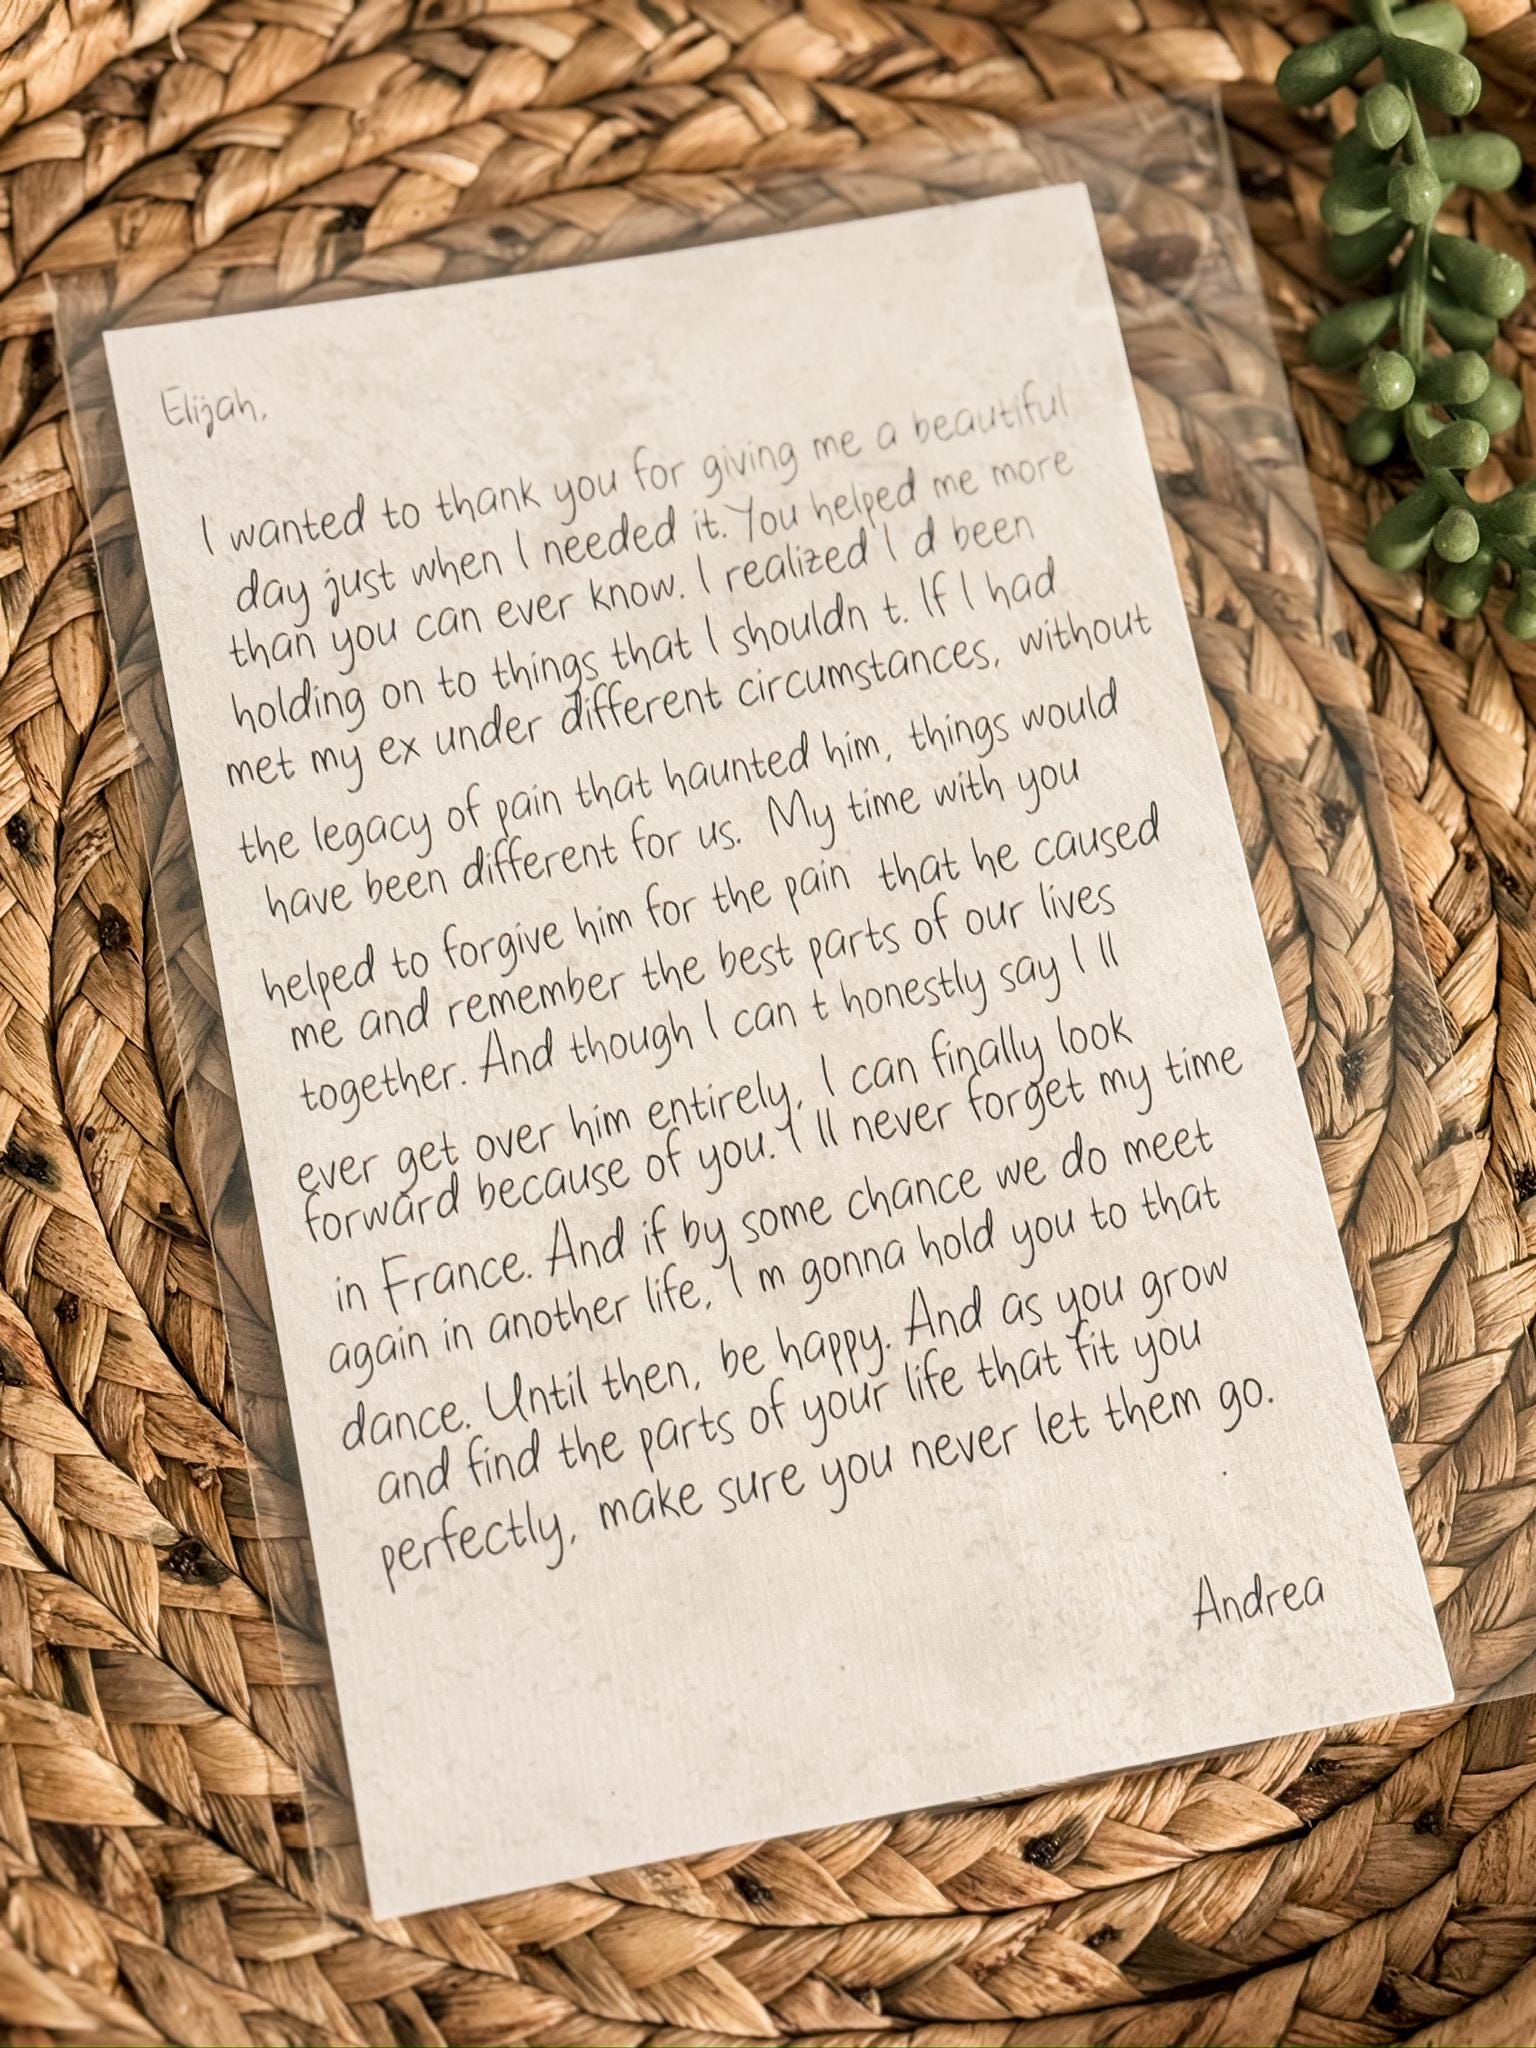 Elijah,
I wanted to thank you for giving me a beautiful
day just when I needed it. You helped me more
than you can ever know. I realized I d been
holding on to things that I shouldn t. If I had
met my ex under different circumstances, without
the legacy of pain that haunted him, things would
have been different for us. My time with you
helped to forgive him for the pain that he caused
me and remember the best parts of our lives
together. And though I can t honestly say I ll
ever get over him entirely, I can finally look
forward because of you. I ll never forget my time
in France. And if by some chance we do meet
again in another life, I m gonna hold you to that
dance. Until then, be happy. And as you grow
and find the parts of your life that fit you
perfectly, make sure you never let them go.
Andrea